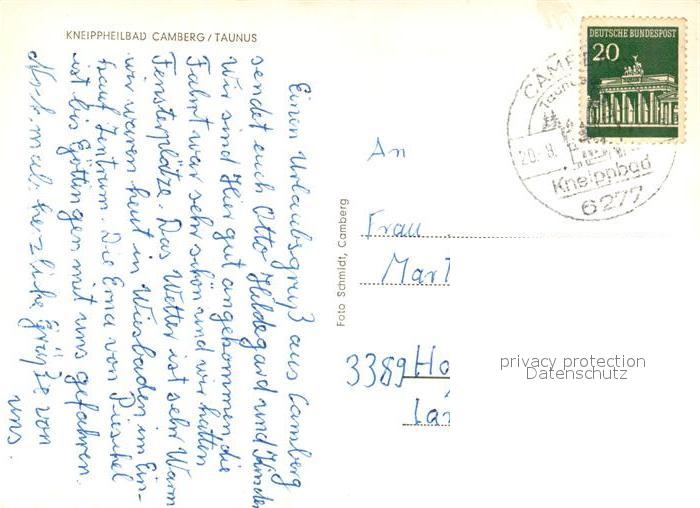 KNEIPPHEILBAD CAMBERG / TAUNUS
Einen Urlaubsgruß aus Camberg
sendet euch Otto Hildegard und Kinder
Wir sind Hier gut angekommen die
Fahrt war sehr schön und wir hatten
Fensterplätze. Das Wetter ist sehr Warm
wir waren heut in Wiesbaden im Ein-
kauf Zentrum. Die Erna von Pieschel
ist bis Göttingen mit uns gefahren.
Noch mal herzliche Grüße von
uns.
Foto Schmidt, Camberg
DEUTSCHE BUNDESPOST
20
CAMBE
Taunus
20.-8.
Kneippbad
6277
An
Frau
Mar
3389 Ho
privacy protection
Datenschutz